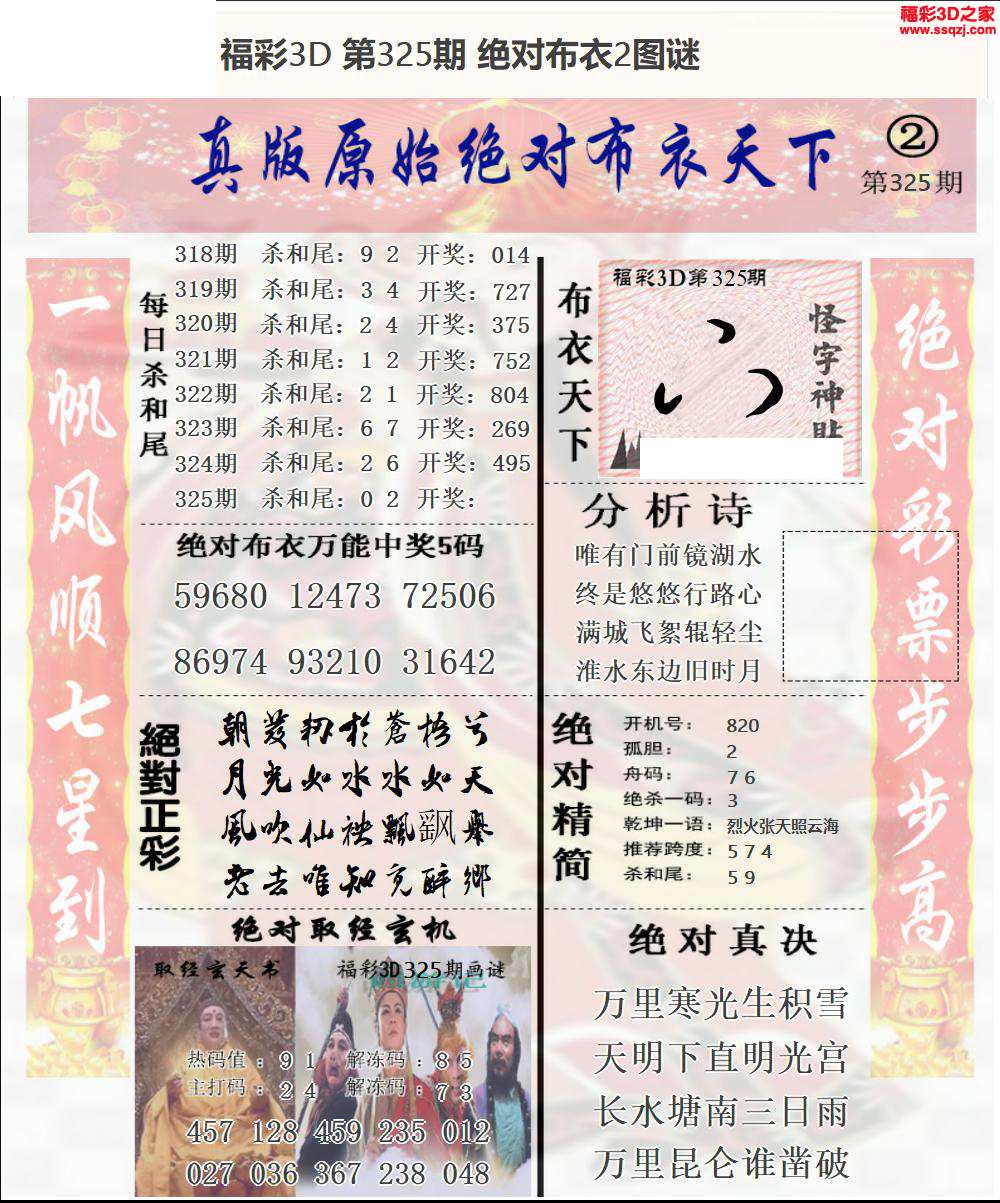 福彩3D之家
www.ssqzj.com
福彩3D 第325期 绝对布衣2图谜
真版原始绝对布衣天下
②
第325期
一帆风顺七星到
每日杀和尾
318期 杀和尾：9 2 开奖：014
319期 杀和尾：3 4 开奖：727
320期 杀和尾：2 4 开奖：375
321期 杀和尾：1 2 开奖：752
322期 杀和尾：2 1 开奖：804
323期 杀和尾：6 7 开奖：269
324期 杀和尾：2 6 开奖：495
325期 杀和尾：0 2 开奖：
绝对布衣万能中奖5码
59680 12473 72506
86974 93210 31642
絕對正彩
朝发轫于苍梧兮
月光如水水如天
風吹仙袂飄飖舉
老去唯知亢醉鄉
绝对取经玄机
取经玄天书
福彩3D325期画谜
热码值：9 1 解冻码：8 5
主打码：2 4 解冻码：7 3
457 128 459 235 012
027 036 367 238 048
布衣天下
福彩3D第325期
怪字神贴
分析诗
唯有门前镜湖水
终是悠悠行路心
满城飞絮辊轻尘
淮水东边旧时月
绝对精简
开机号：820
孤胆：2
舟码：7 6
绝杀一码：3
乾坤一语：烈火张天照云海
推荐跨度：5 7 4
杀和尾：5 9
绝对真决
万里寒光生积雪
天明下直明光宫
长水塘南三日雨
万里昆仑谁凿破
绝对彩票步步高